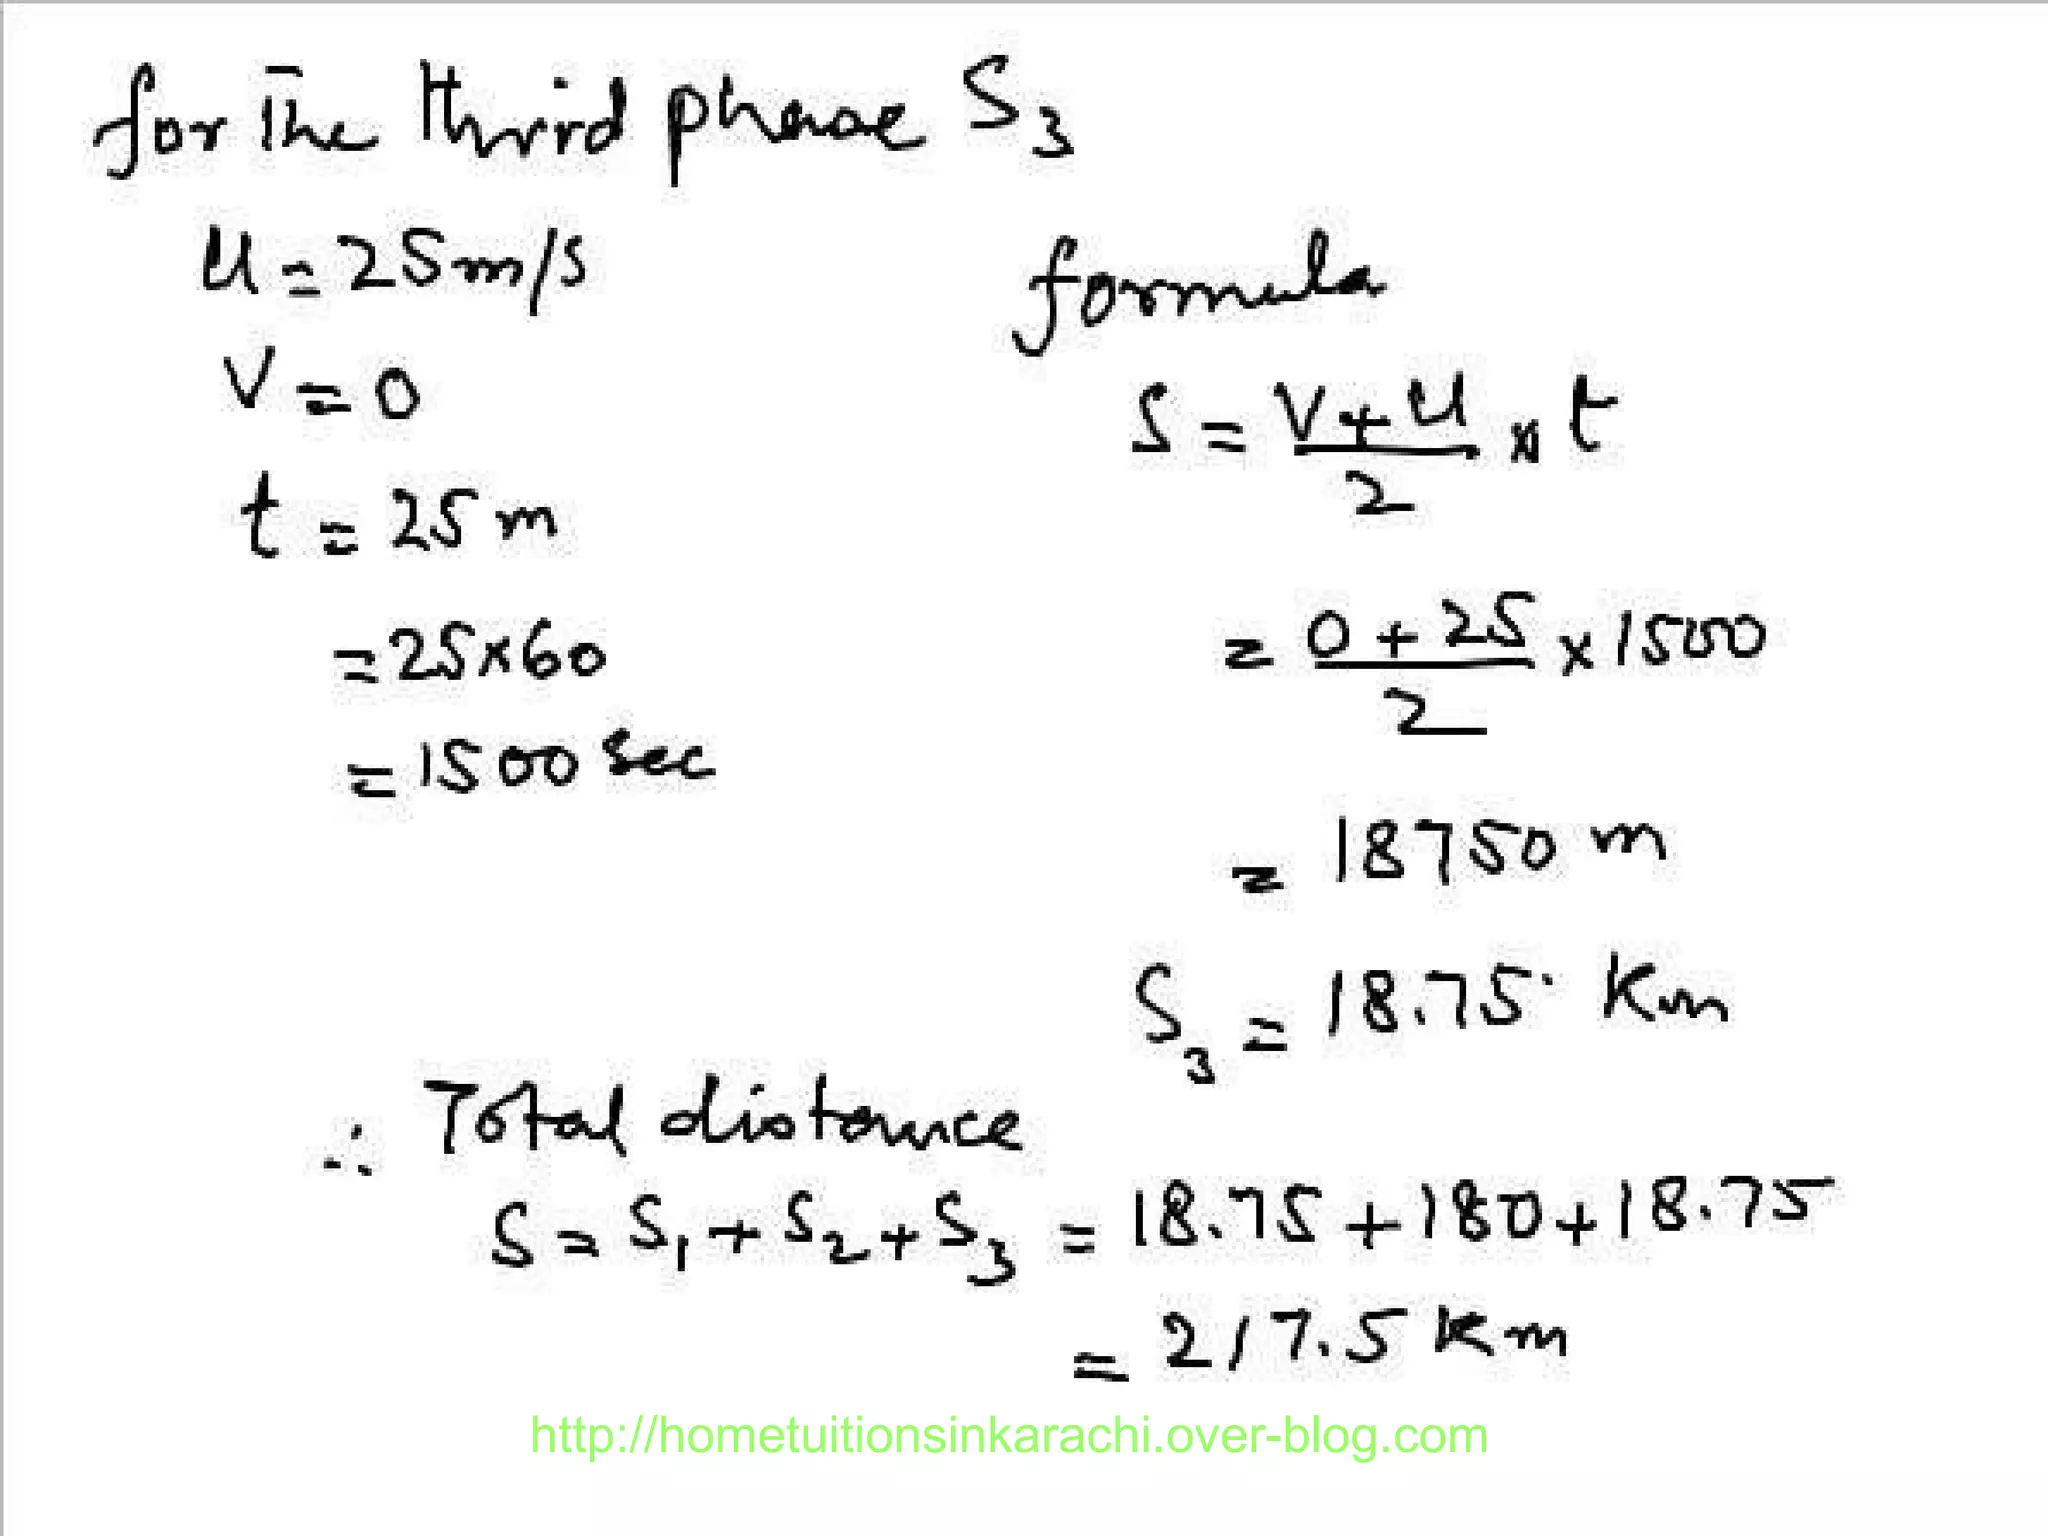 for The third phase S₃
u = 25 m/s
V = 0
t = 25 m
= 25 x 60
= 1500 sec
formula
S = V+u/2 x t
= 0 + 25/2 x 1500
= 18750 m
S₃ = 18.75 Km
∴ Total distance
S = S₁ + S₂ + S₃ = 18.75 + 180 + 18.75
= 217.5 Km
http://hometuitionsinkarachi.over-blog.com